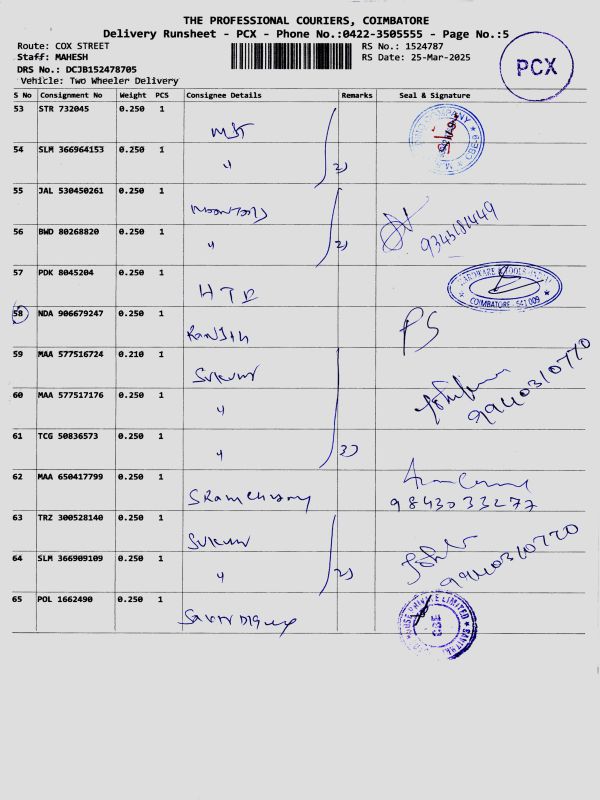 THE PROFESSIONAL COURIERS, COIMBATORE
Delivery Runsheet - PCX - Phone No.:0422-3505555 - Page No.:5
Route: COX STREET RS No.: 1524787
Staff: MAHESH RS Date: 25-Mar-2025
DRS No.: DCJB152478705
Vehicle: Two Wheeler Delivery
PCX
S No Consignment No Weight PCS Consignee Details Remarks Seal & Signature
53 STR 732045 0.250 1
54 SLM 366964153 0.250 1 " 2)
55 JAL 530450261 0.250 1
56 BWD 80268820 0.250 1 " 2) 9345181449
57 PDK 8045204 0.250 1 HTE HARDWARE & TOOLS COIMBATORE - 641 009
58 NDA 906679247 0.250 1 Ranjith PS
59 MAA 577516724 0.210 1 Sukumr
60 MAA 577517176 0.250 1 " 9940310770
61 TCG 50836573 0.250 1 " 3)
62 MAA 650417799 0.250 1 9843033277
63 TRZ 300528140 0.250 1 Sukumr
64 SLM 366909109 0.250 1 " 2) 9940310770
65 POL 1662490 0.250 1 PRIVATE LIMITED